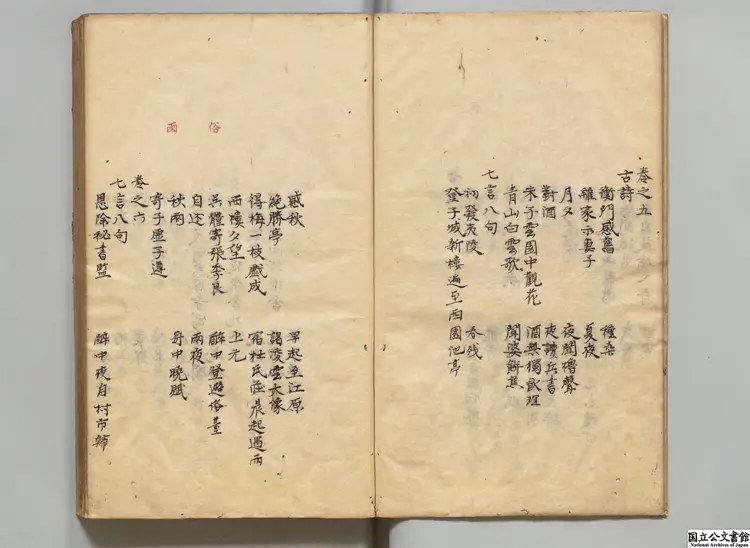 卷之五
古詩
衡門感舊
種桑
離家示妻子
夏夜
月夕
夜聞櫓聲
對酒
夜讀兵書
朱子雲園中觀花
酒無獨飲理
青山白雲歌
聞婆餅焦
七言八句
初發夷陵
春殘
登子城新樓遍至西園池亭
感秋
早起至江原
絕勝亭
謁凌雲大像
得梅一枝戲成
宿杜氏莊晨起遇雨
西樓夕望
上元
吳體寄張季長
醉中登避俗臺
自述
雨夜
秋雨
舟中晚賦
寄子虛子遵
卷之六
七言八句
恩除秘書監
醉中夜自村市歸
俗
雨
国立公文書館
National Archives of Japan